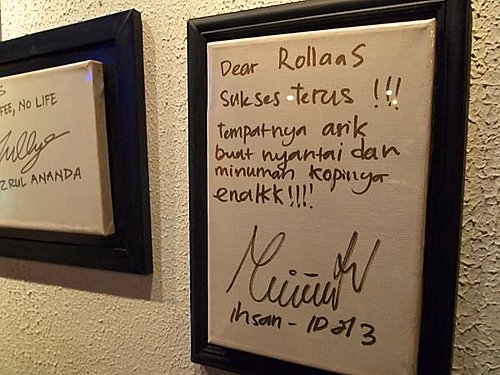 FEE, NO LIFE
ZRUL ANANDA
Dear Rollaas
Sukses terus !!!
tempatnya asik
buat nyantai dan
minuman kopinya
enakkk!!!!
Ihsan - ID 2013